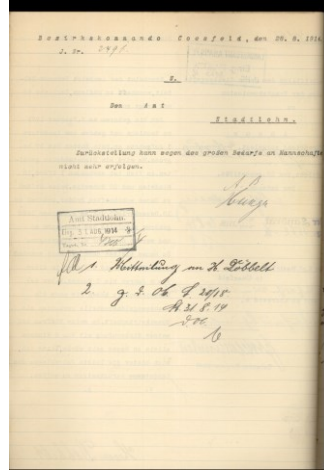 Bezirkskommando Coesfeld, den 28. 8. 1914
J. Nr. 2491
U.
Dem Amt
Stadtlohn.
Zurückstellung kann wegen des großen Bedarfs an Mannschafte
nicht mehr erfolgen.
Amt Stadtlohn.
Eing. 31 AUG. 1914
1. Mitteilung an H Löbbelt
2. g. d. Ob.
31 8. 14